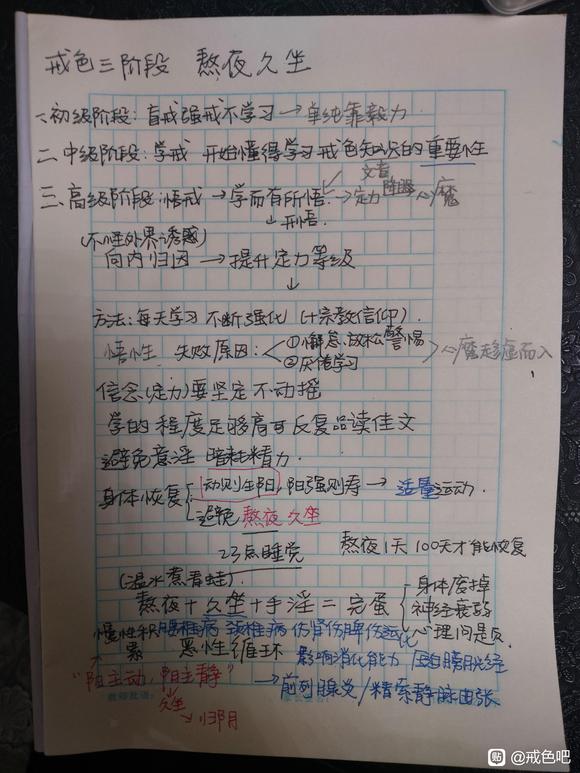 戒色三阶段 熬夜久坐
一、初级阶段：盲戒强戒不学习→单纯靠毅力
二、中级阶段：学戒 开始懂得学习戒色知识的重要性
三、高级阶段：悟戒→学而有所悟→定力 心魔
→开悟
(不怪外界诱惑)
向内归因→提升定力等级
方法：每天学习 不断强化(十宗教信仰)
悟性 失败原因：①懈怠，放松警惕 ②厌倦学习 心魔趁虚而入
信念(定力)要坚定不动摇
学的程度足够高可反复品读佳文
避免意淫 暗耗精力
身体恢复 动则生阳，阳强则寿→适量运动
避免熬夜 久坐
23点睡觉 熬夜1天 100天才能恢复
(温水煮青蛙)
熬夜+久坐+手淫=完蛋 身体废掉 神经衰弱 心理问题
慢性积累 腰椎病 颈椎病 伤肾伤脾伤运化
恶性循环 影响消化能力 压迫膀胱经
"阳主动，阴主静" →前列腺炎/精索静脉曲张
教师批语：
久坐
→归阴
贴 @戒色吧